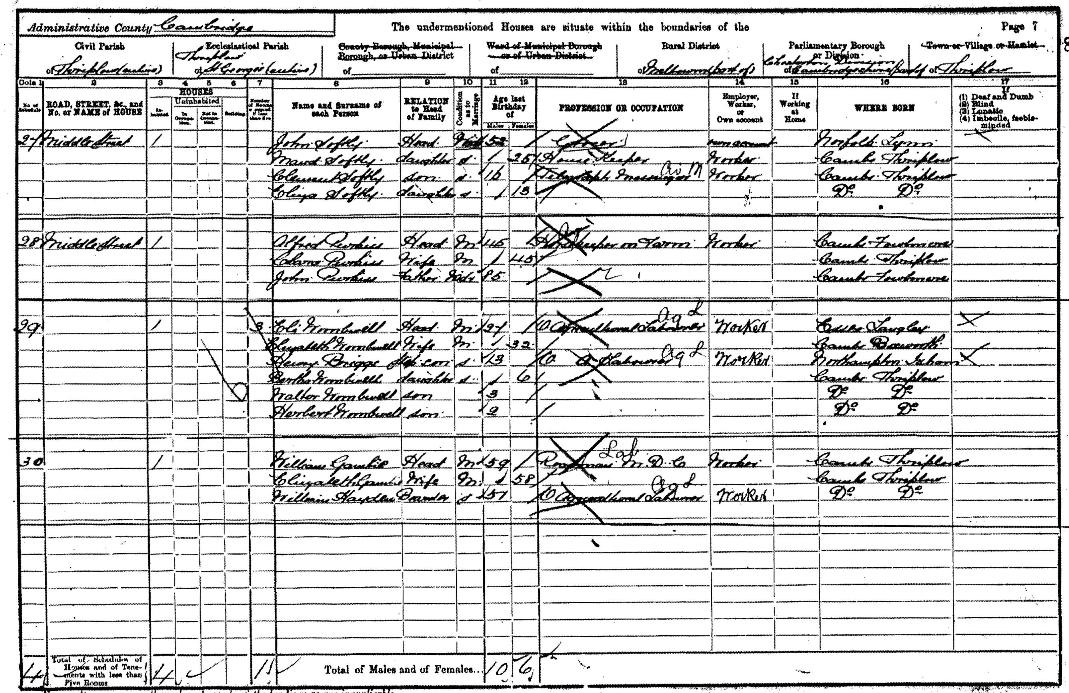 Administrative County Cambridge The undermentioned Houses are situate within the boundaries of the Page 7
Civil Parish Ecclesiastical Parish County Borough, Municipal Borough, or Urban District Ward of Municipal Borough or of Urban District Rural District Parliamentary Borough or Division Town or Village or Hamlet
of Thriplow (entire) Thriplow of St Georges (entire) of of of Melbourn (part of) Chesterton Division of Cambridgeshire (part) of Thriplow
Cols 1 2 3 4 5 6 7 8 9 10 11 12 13 14 15 16 17
No. of Schedule ROAD, STREET, &c., and No. or NAME of HOUSE HOUSES Inhabited Uninhabited In Occupation Not in Occupation Building Name and Surname of each Person RELATION to Head of Family Condition as to Marriage Age last Birthday of Males Females PROFESSION OR OCCUPATION Employer, Worker, or Own account If Working at Home WHERE BORN (1) Deaf and Dumb (2) Blind (3) Lunatic (4) Imbecile, feeble-minded
27 Middle Street 1 John Softly Head 52 own account Norfolk Lynn
Maud Softly daughter s 25 House Keeper Worker Cambs Thriplow
Clement Softly son s 16 Telegraph Messenger Worker Cambs Thriplow
Eliza Softly daughter s 13 Do Do
28 Middle Street 1 Alfred Perkiss Head M 45 Horsekeeper on Farm Worker Cambs Fowlmere
Clara Perkiss Wife M 45 Cambs Thriplow
John Perkiss Father Wid 85 Cambs Fowlmere
29 1 3 Eli Wombwell Head M 37 Agricultural Labourer Ag L Worker Essex Langley
Elizabeth Wombwell Wife M 32 Cambs
Henry Briggs Step son s 13 Labourer Ag L Worker Northampton
Bertha Wombwell daughter s 6 Cambs Thriplow
Walter Wombwell son 3 Do Do
Herbert Wombwell son 2 Do Do
30 1 William Gamble Head M 59 Roadman R.D.C Lab Worker Cambs Thriplow
Elizabeth Gamble Wife M 58 Cambs Thriplow
William Boarder s 51 Agricultural Labourer Ag L Worker Do Do
4 Total of Schedules of Houses and of Tenements with less than Five Rooms 4 1 Total of Males and of Females... 10 6